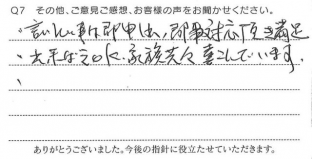 Q7 その他、ご意見ご感想、お客様の声をお聞かせください。
・言いたい事は即申し出、即対応頂き満足
・出来ばえには、家族共々喜こんでいます。
ありがとうございました。今後の指針に役立たせていただきます。